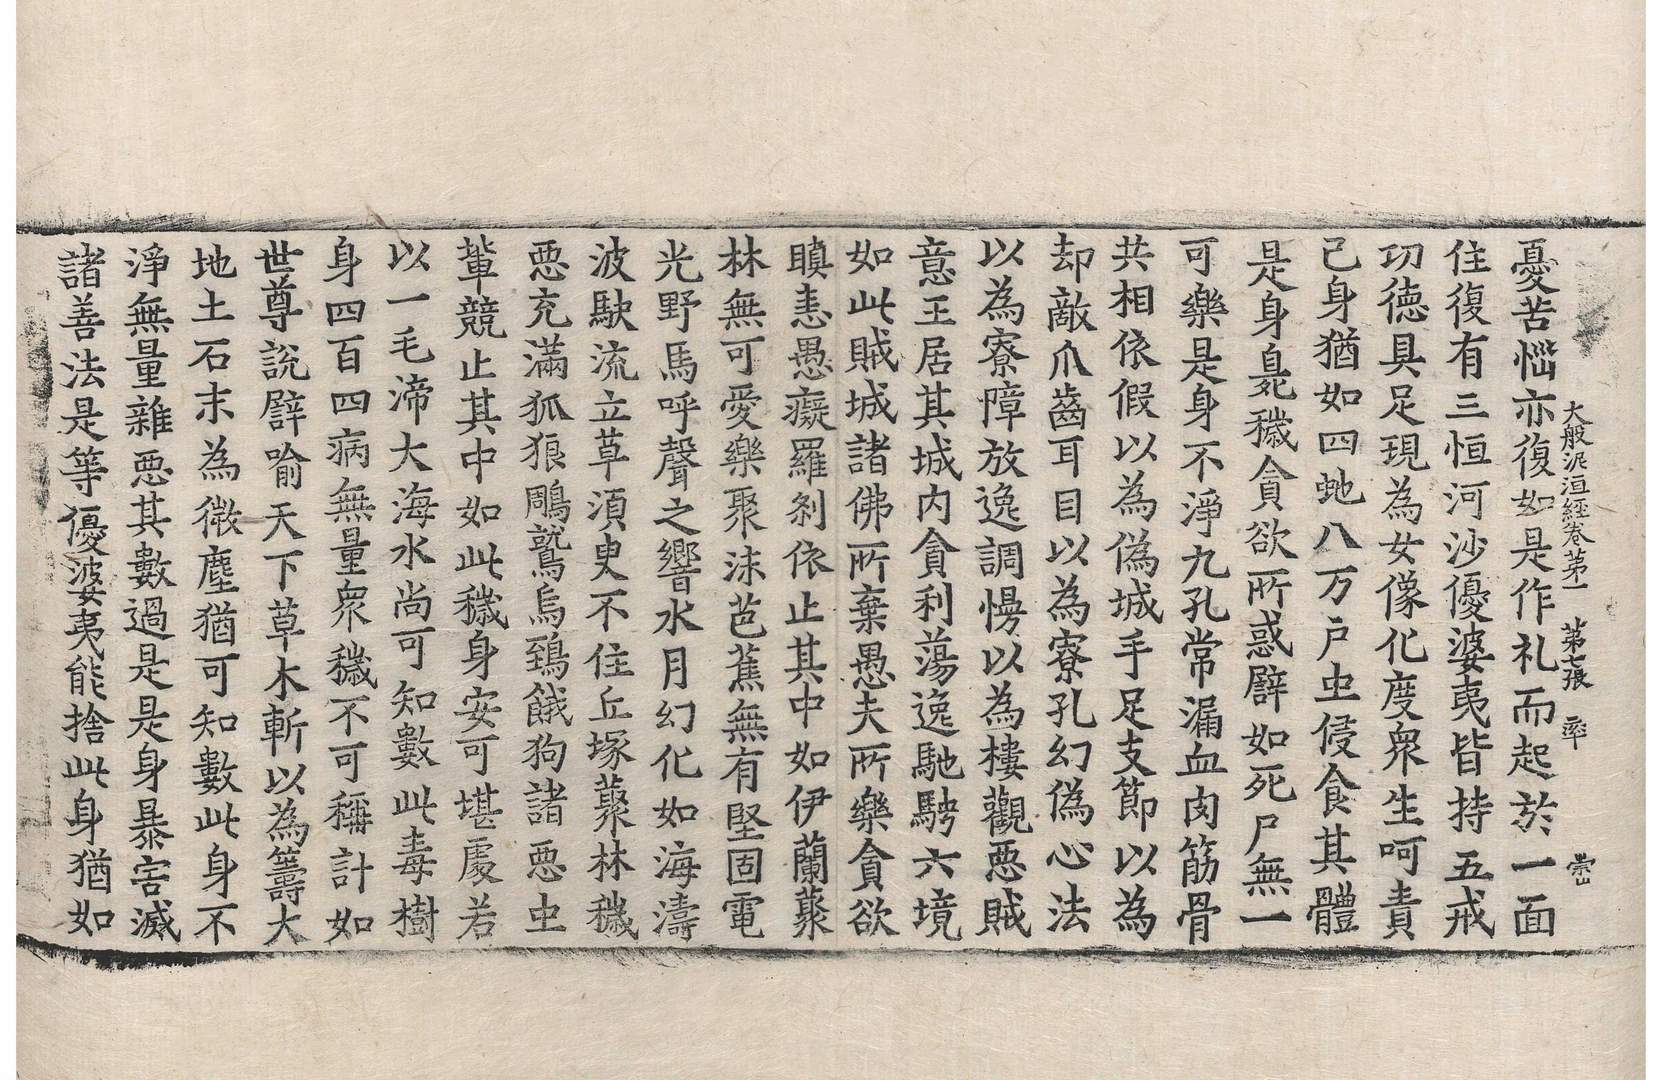 大般泥洹經卷第一　第七張　率
憂苦惱亦復如是作礼而起於一面
住復有三恒河沙優婆夷皆持五戒
功德具足現為女像化度衆生呵責
己身猶如四虵八万户虫侵食其體
是身臰穢貪欲所惑譬如死尸無一
可樂是身不淨九孔常漏血肉筋骨
共相依假以為偽城手足支節以為
却敵爪齒耳目以為寮孔幻偽心法
以為寮障放逸調慢以為樓觀惡賊
意王居其城内貪利蕩逸馳騁六境
如此賊城諸佛所棄愚夫所樂貪欲
瞋恚愚癡羅刹依止其中如伊蘭藂
林無可愛樂聚沫芭蕉無有堅固電
光野馬呼聲之響水月幻化如海濤
波駛流立草湏臾不住丘塚藂林穢
惡充滿狐狼鵰鷲烏鵄餓狗諸惡虫
輩競止其中如此穢身安可堪處若
以一毛渧大海水尚可知數此毒樹
身四百四病無量衆穢不可稱計如
世尊說譬喻天下草木斬以為籌大
地土石末為微塵猶可知數此身不
淨無量雜惡其數過是是身暴害滅
諸善法是等優婆夷能捨此身猶如